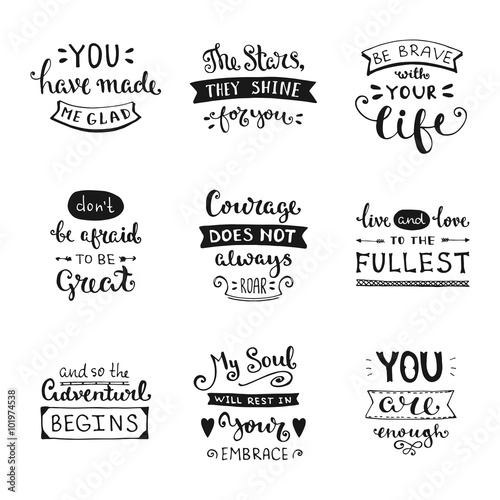 YOU
have made
ME GLAD
The Stars,
THEY SHINE
for you
BE BRAVE
with
YOUR
life
don't
be afraid
TO BE
Great
Courage
DOES NOT
always
ROAR
live and love
TO THE
FULLEST
and so the
Adventure
BEGINS
My Soul
WILL REST IN
Your
EMBRACE
YOU
are
enough
Adobe Stock
101974538